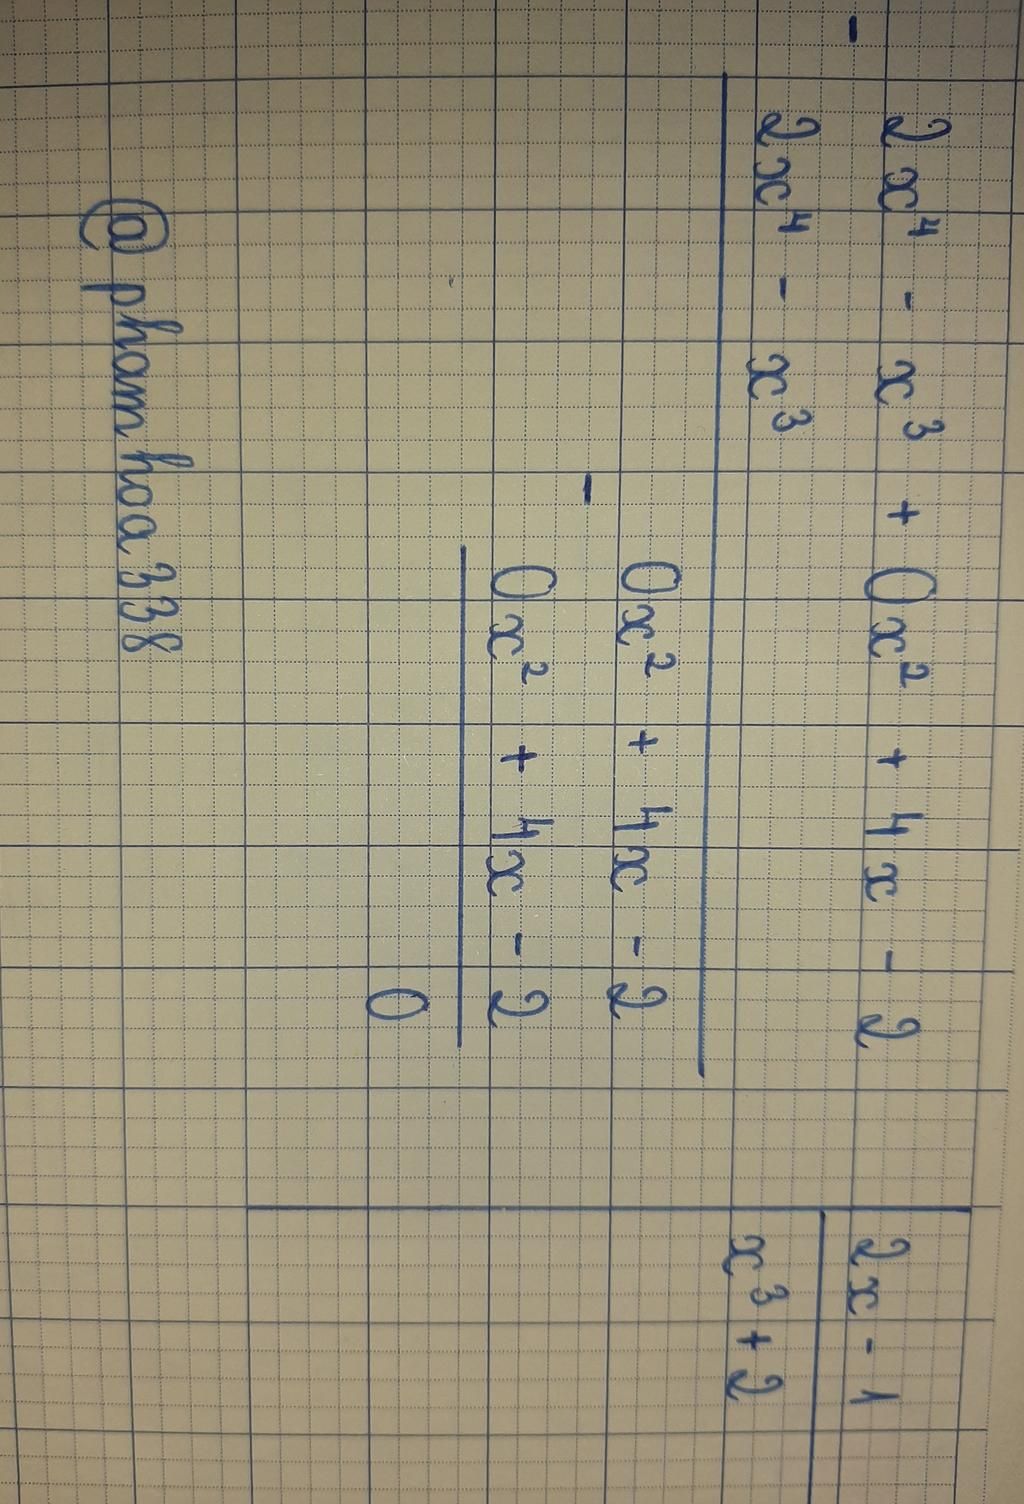 2x⁴ - x³ + 0x² + 4x - 2 | 2x - 1
-
2x⁴ - x³ | x³ + 2
0x² + 4x - 2
-
0x² + 4x - 2
0
@phamhoa338